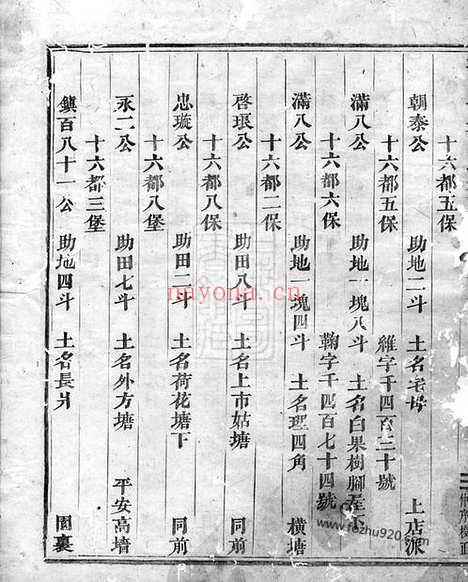 十六都五保
朝泰公 助地二斗 土名 上店派
十六都五保 維字千四百三十號
滿八公 助地一塊八斗 土名白果樹腳
十六都六保 鞠字千四百七十四號
滿八公 助地一塊四斗 土名理四角 橫塘
十六都二保
啓琅公 助田八斗 土名上市姑塘
十六都八保
忠璇公 助田二斗 土名荷花塘下 同前
十六都八堡
永二公 助田七斗 土名外方塘 平安高墻
十六都三堡
鎮百八十一公 助地四斗 土名長 園裏
nayona.cn